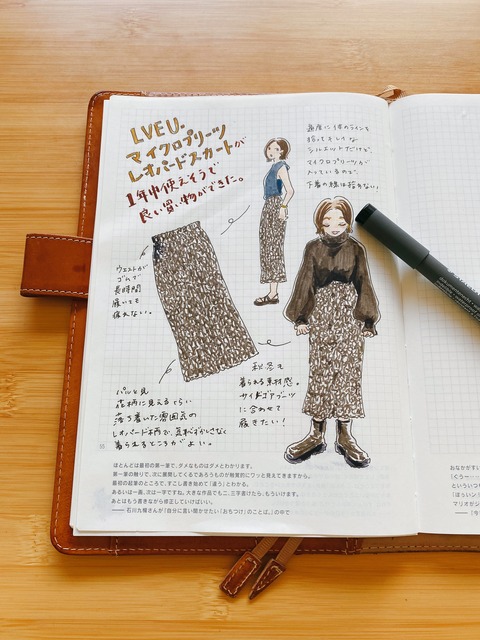 LVEU.
マイクロプリーツ
レオパードスカートが
1年中使えそうで
良い買い物ができた。
適度に体のラインを
拾ってキレイな
シルエットだけど、
マイクロプリーツが
入っているので、
下着の線は拾わない。
ウエストが
ゴムで
長時間
履いても
疲れない。
パッと見
花柄に見えるくらい
落ち着いた雰囲気の
レオパード柄で、気恥ずかしさなく
着られるところがよい。
秋冬も
着られる素材感。
サイドゴアブーツ
に合わせて
履きたい!
55
ほとんどは最初の第一筆で、ダメなものはダメとわかります。
第一筆の触りで、次に展開してくるであろうものが触覚的にワッと見えてきますから。
最初の起筆のところで、すこし書き始めて「違う」とわかる。
あるいは一画、次は一字ですね。大きな作品でも二、三字書けたら、もういけます。
あとはもう書きながら修正していけばいい。
——石川九楊さんが『自分に言い聞かせたい「おちつけ」のことば。』の中で
おなかがすい
「くぅ〜…
といういつ
「ほういン
マリオがジ
——『今